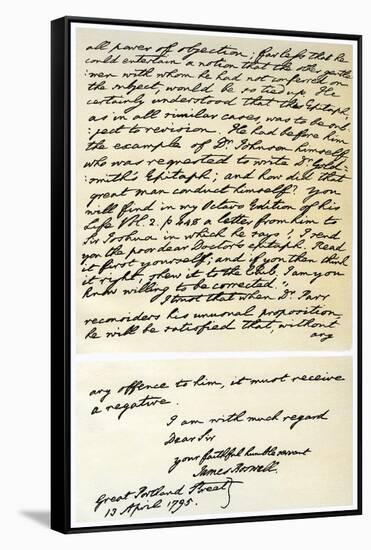 all power of objection: far less that he
could entertain a notion that the other gentle-
:men with whom he had not conferred on
the subject, would be so tied up. He
certainly understood that the Epitaph,
as in all similar cases, was to be sub-
:ject to revision. He had before him
the example of Dr. Johnson himself,
who was requested to write Dr. Gold-
smith's Epitaph; and how did that
great man conduct himself? You
will find in my Octavo Edition of his
Life Vol. 2. p. 448 a letter from him to
Sir Joshua in which he says, "I send
you the poor dear Doctor's epitaph. Read
it first yourself; and if you then think
it right, shew it to the Club. I am you
know willing to be corrected."
I trust that when Dr. Parr
reconsiders his unusual proposition
he will be satisfied that, without
any
any offence to him, it must receive
a negative.
I am with much regard
Dear Sir
your faithful humble servant
James Boswell.
Great Portland Street
13 April 1795.